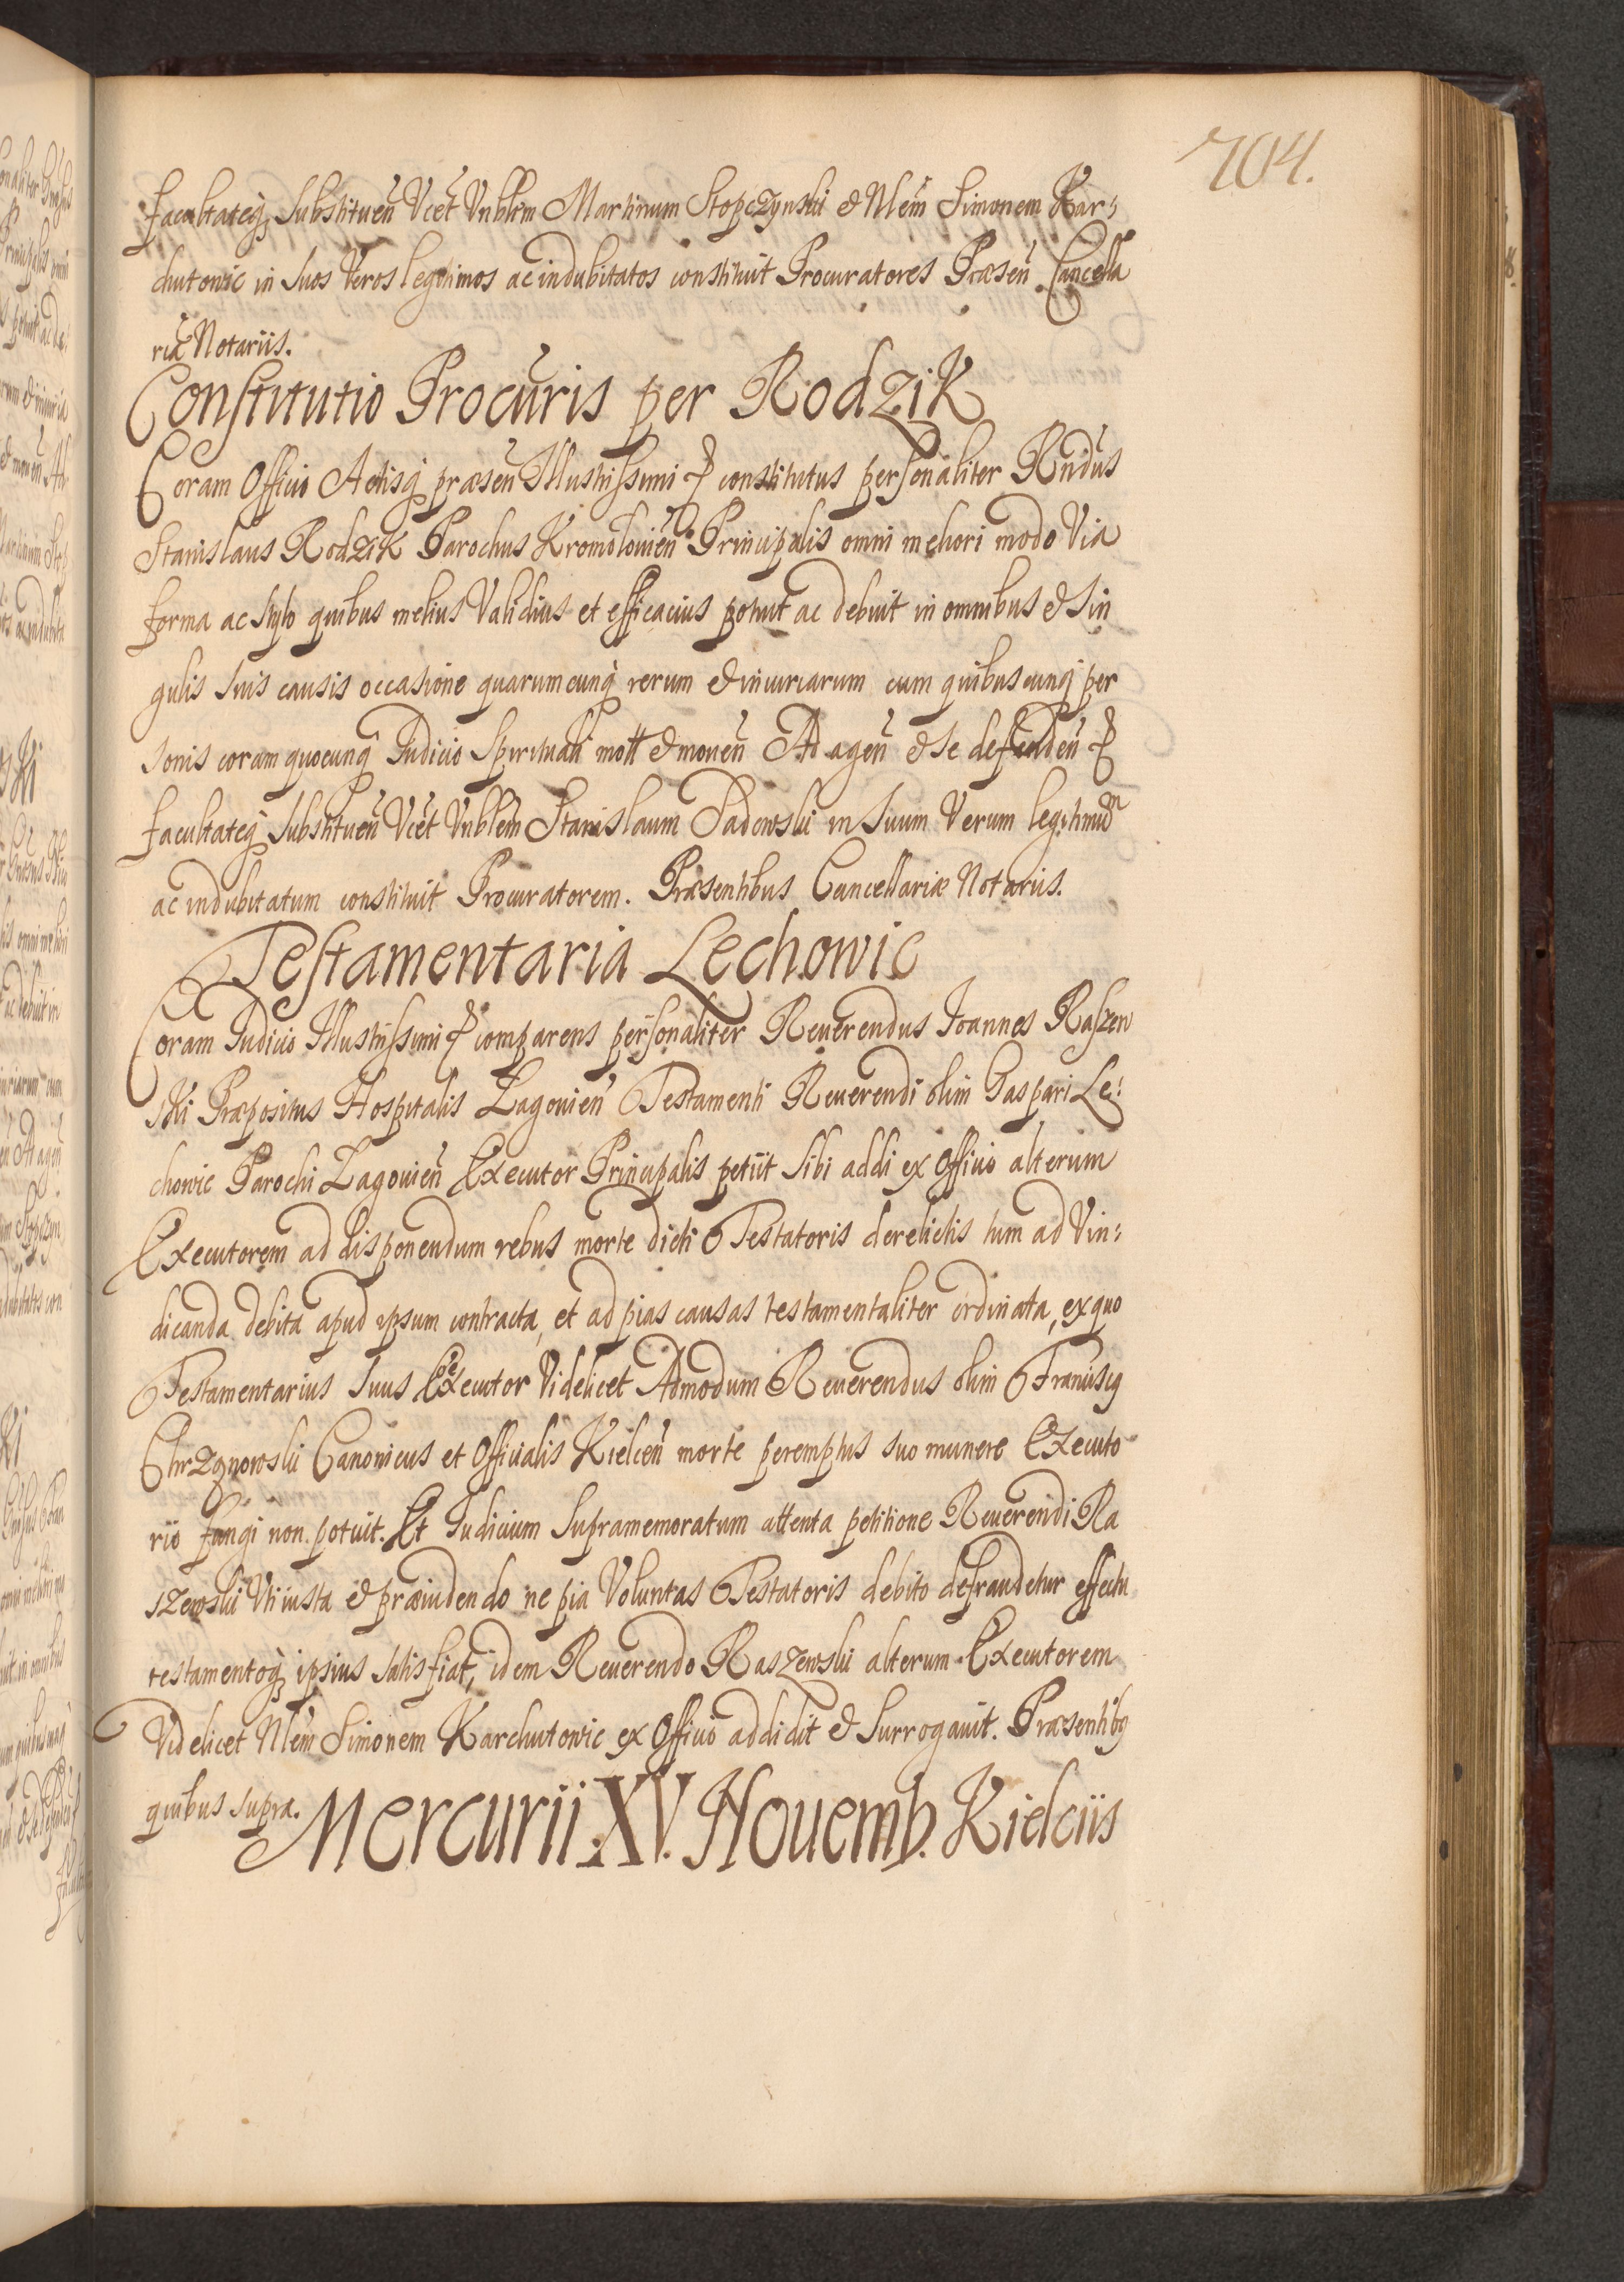 704.
facultateq̃ substituen̄ Vcet Vnblem Martinum Stopczynski & Nlem̄ Simonem Kar=
chutowic in suos Veros legitimos ac indubitatos constituit Procuratores Præsen̄ Cancella
riæ Notariis.
Constitutio Procūris per Rodzik
Coram Officio Actisq̃ præsen̄ Illustrissimi & constitutus personaliter Rn̄dus
Stanislaus Rodzik Parochus Kromołouien̄ Principalis omni meliori modo Via
forma ac stylo quibus melius Validius et efficacius potuit ac debuit in omnibus & sin
gulis suis causis occasione quarumcunq̃ rerum & iniuriarum cum quibuscunq̃ per
sonis coram quocunq̃ Iudicio Spirituali mott & mouen̄ Ad agen̄ & se defenden̄ &
facultateq̃ substituen̄ Vcet Vnblem̄ Stanislaum Sadowski in suum Verum legitimūm
ac indubitatum constituit Procuratorem. Præsentibus Cancellariæ Notariis.
Testamentaria Lechowic
Coram Iudicio Illustrissimi & comparens personaliter Reuerendus Ioannes Raszew
ski Præpositus Hospitalis Łagouien̄ Testamenti Reuerendi olim Gaspari Le=
chowic Parochi Łagouien̄ Executor Principalis petiit sibi addi ex Officio alterum
Executorem ad disponendum rebus morte dicti Testatoris derelictis tum ad Vin=
dicanda debita apud ipsum contracta, et ad pias causas testamentaliter ordinata, ex quo
Testamentarius suus Executor Videlicet Admodum Reuerendus olim Franciscq
Chrzqnowski Canonicus et Officialis Kielcen̄ morte peremptus suo munere Executo
rio fungi non potuit. Et Iudicium supramemoratum attenta petitione Reuerendi Ra
szewski Vti iusta & præcludendo ne pia Voluntas Testatoris debito defraudetur effectu
testamentoq̃ ipsius satisfiat, idem Reuerendo Raszewski alterum Executorem
Videlicet Nlem̄ Simonem Karchutowic ex Officio addidit & surrogauit. Præsentibq
quibus supra.
Mercurii XV. Nouemb. Kielciis